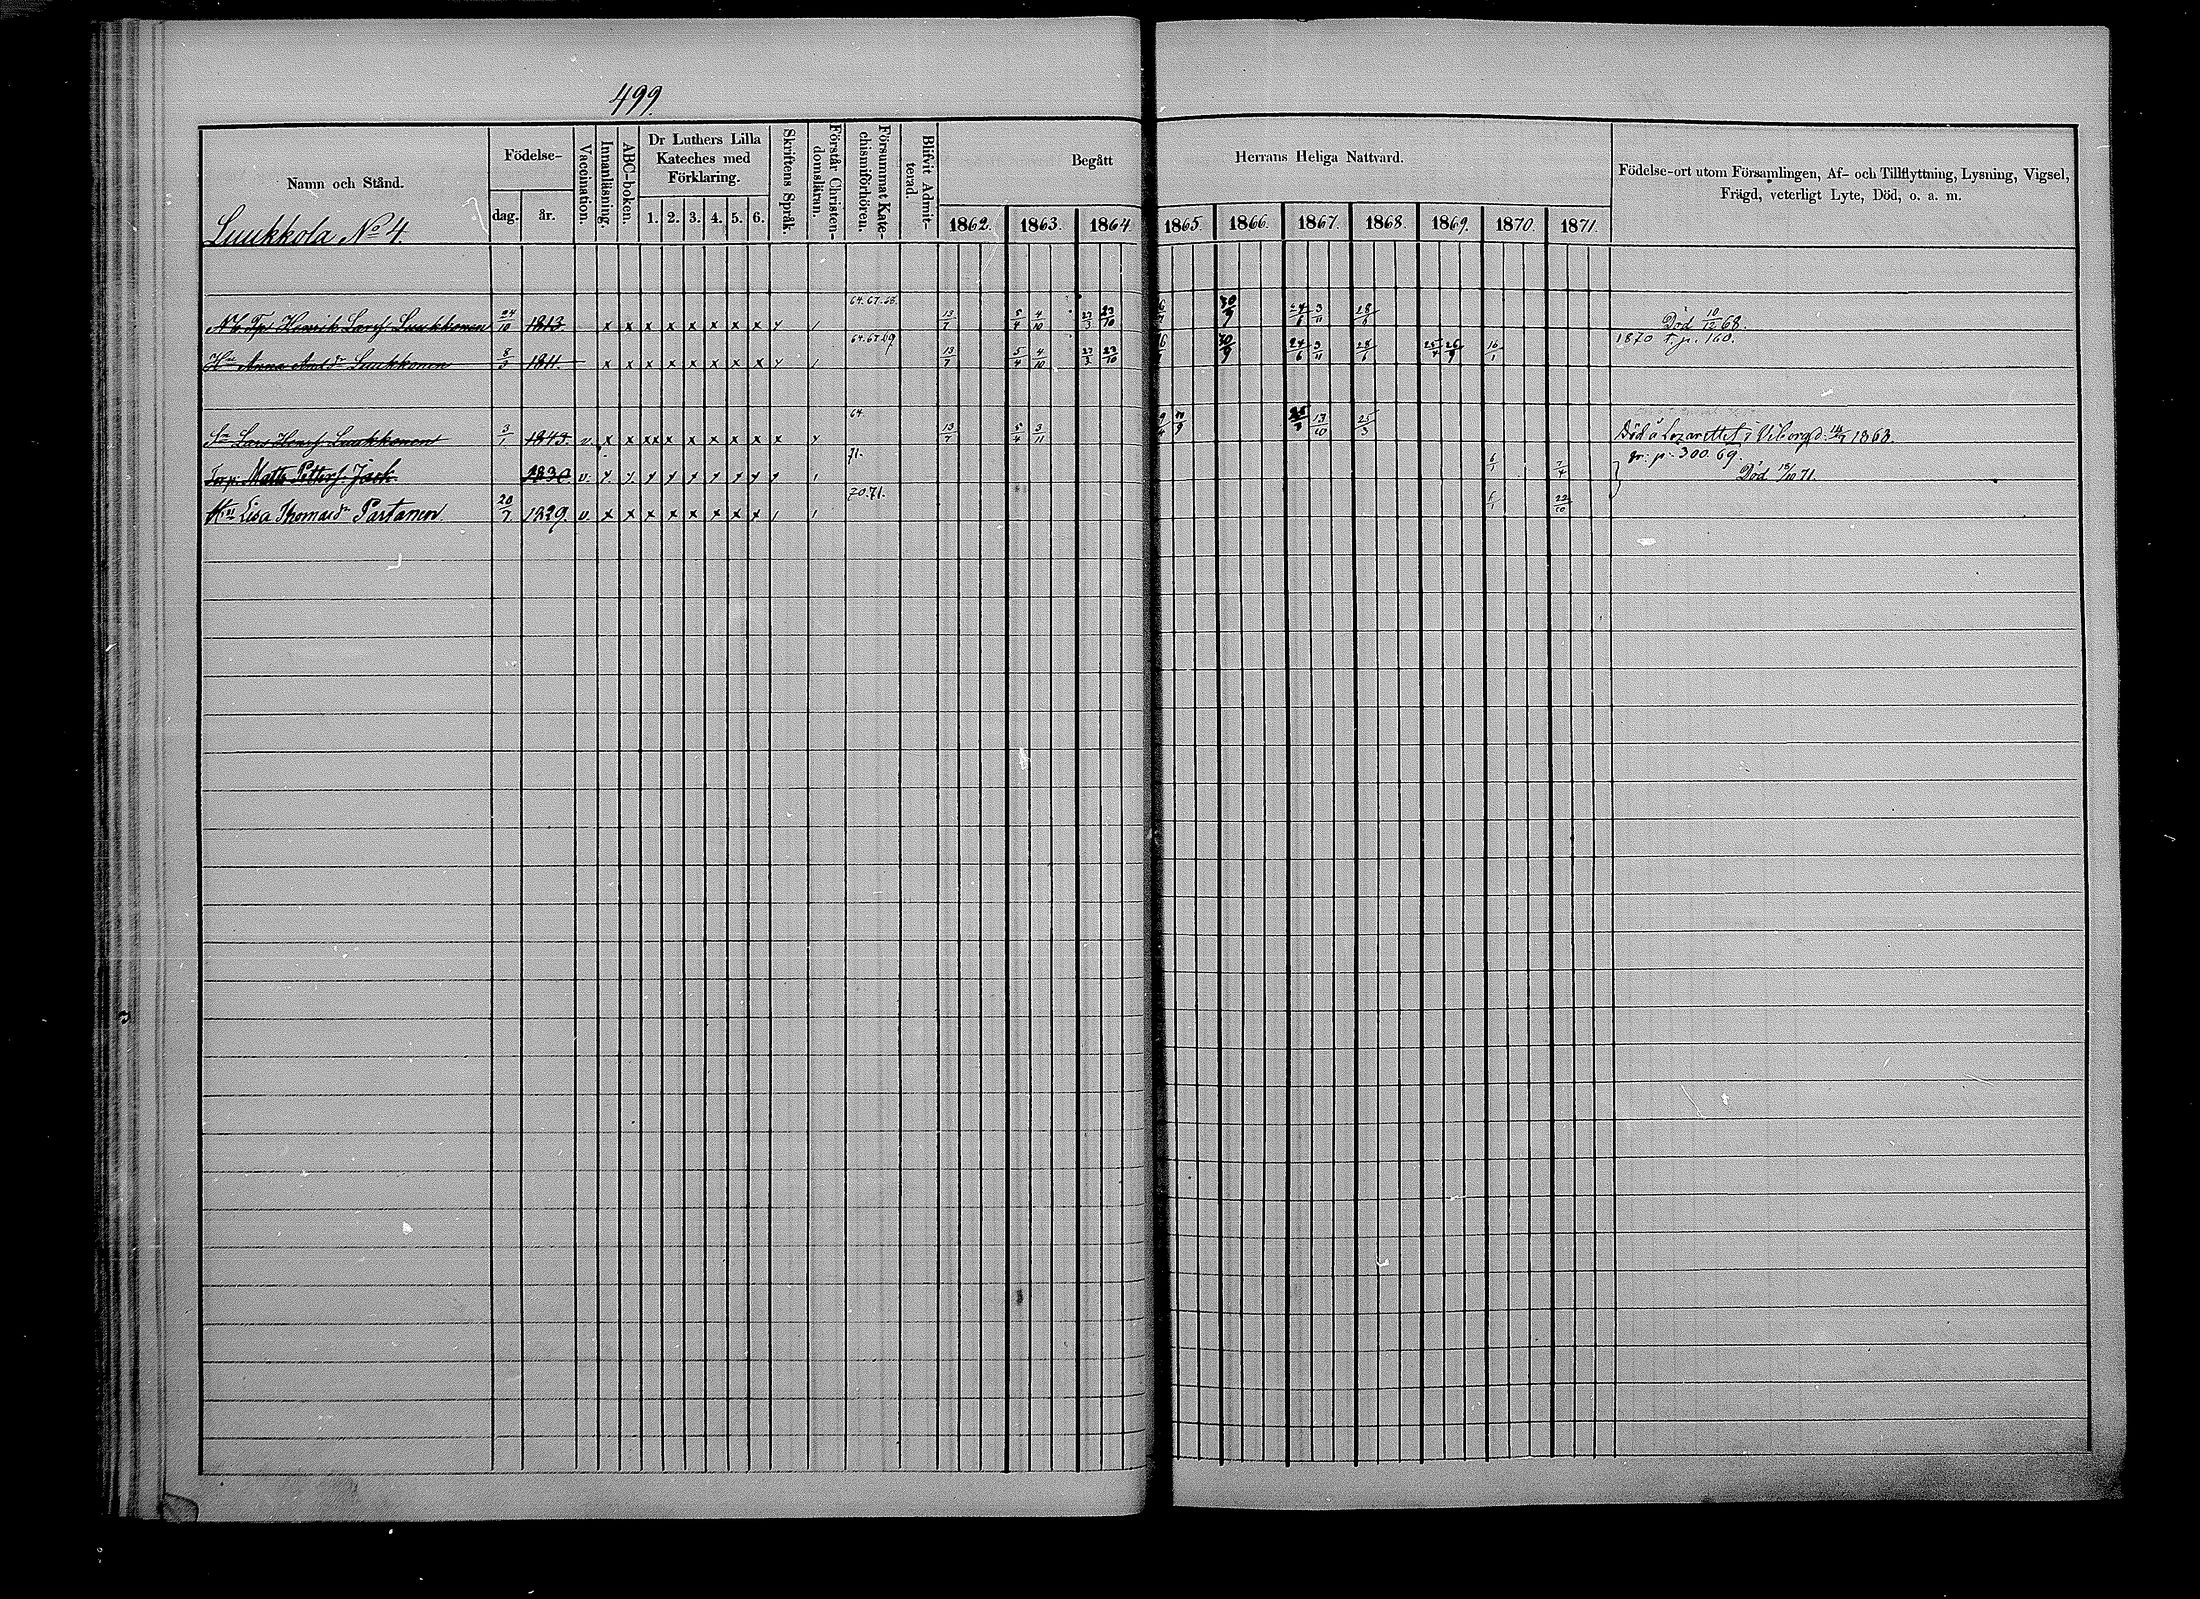 499.
Namn och Stånd.
Luukkola No 4.
Födelse-
dag. år.
Vaccination.
Innanläsning.
ABC-boken.
Dr Luthers Lilla
Kateches med
Förklaring.
1. 2. 3. 4. 5. 6.
Skriftens Språk.
Förstår Christen-
domsläran.
Försummat Kate-
chismiförhören.
Blifvit Admit-
terad.
Begått Herrans Heliga Nattvard.
1862. 1863. 1864. 1865. 1866. 1867. 1868. 1869. 1870. 1871.
Födelse-ort utom Församlingen, Af- och Tillflyttning, Lysning, Vigsel,
Frägd, veterligt Lyte, Död, o. a. m.
Henrik Larss Luukkonen 24/10 1813 x x x x x x x x 64.67.68. 13/7 5/4 4/10 23/3 23/10 30/9 24/6 3/11 28/6 Död 10/12 68.
Hu Anna Andsdr Luukkonen 8/3 1811. x x x x x x x x 64.67.69 13/7 5/4 4/10 23/3 23/10 30/9 24/6 3/11 28/6 25/4 26/9 16/1 1870 t. p. 160.
Sn Lars Henrss Luukkonen 3/1 1843. v. x x xx x x x x x x 64. 13/7 5/4 3/11 13/10 25/3 Död å Lazarettet i Viborg d. 1868.
Torp. Matts Petterss Jäsk 1830 v. 71. 6/1 7/4 fr. p. 300 69. Död 18/10 71.
Hu Lisa Thomasdr Partanen 20/7 1829. v. x x x x x x x x 70.71. 6/1 22/10